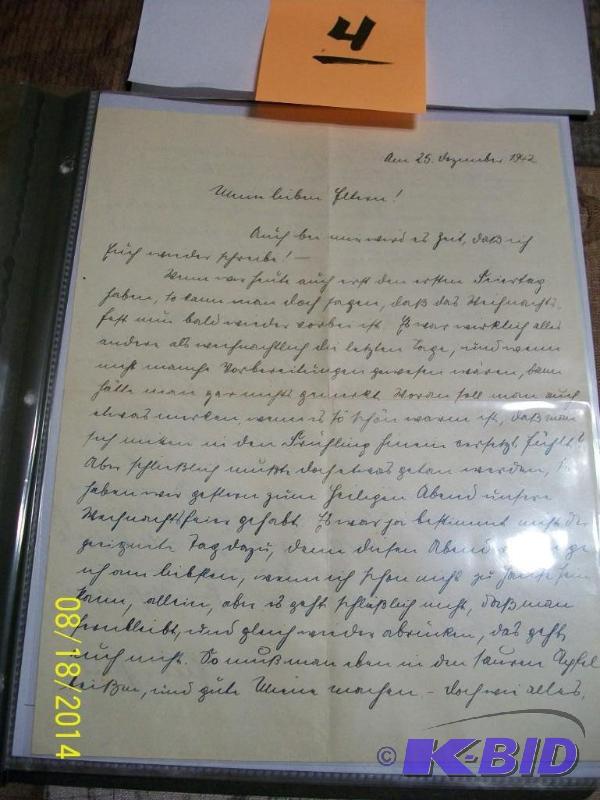 4
Am 25. Dezember 1942
Meine lieben Eltern!
Auch bei mir wird es Zeit, daß ich
Euch wieder schreibe! —
Wenn wir heute auch erst den ersten Feiertag
haben, so kann man doch sagen, daß das Weihnachts-
fest nun bald wieder vorbei ist. Es war wirklich alles
andere als weihnachtlich die letzten Tage, und wenn
nicht manche Vorbereitungen gewesen wären, dann
hätte man gar nichts gemerkt. Woran soll man auch
etwas merken, wenn es so schön warm ist, daß man
sich mitten in den Frühling hinein versetzt fühlt?
Aber schließlich mußte doch etwas getan werden,
haben wir gestern zum Heiligen Abend unsere
Weihnachtsfeier gehabt. Es war ja bestimmt nicht der
geeignete Tag dazu, denn diesen Abend
ich am liebsten, wenn ich schon nicht zu Hause sein
kann, allein, aber es geht schließlich nicht, daß man
fernbleibt, und gleich wieder abrücken, das geht
auch nicht. So muß man eben in den sauren Apfel
beißen, und gute Miene machen. – Doch wie alles,
08/18/2014
© K-BID